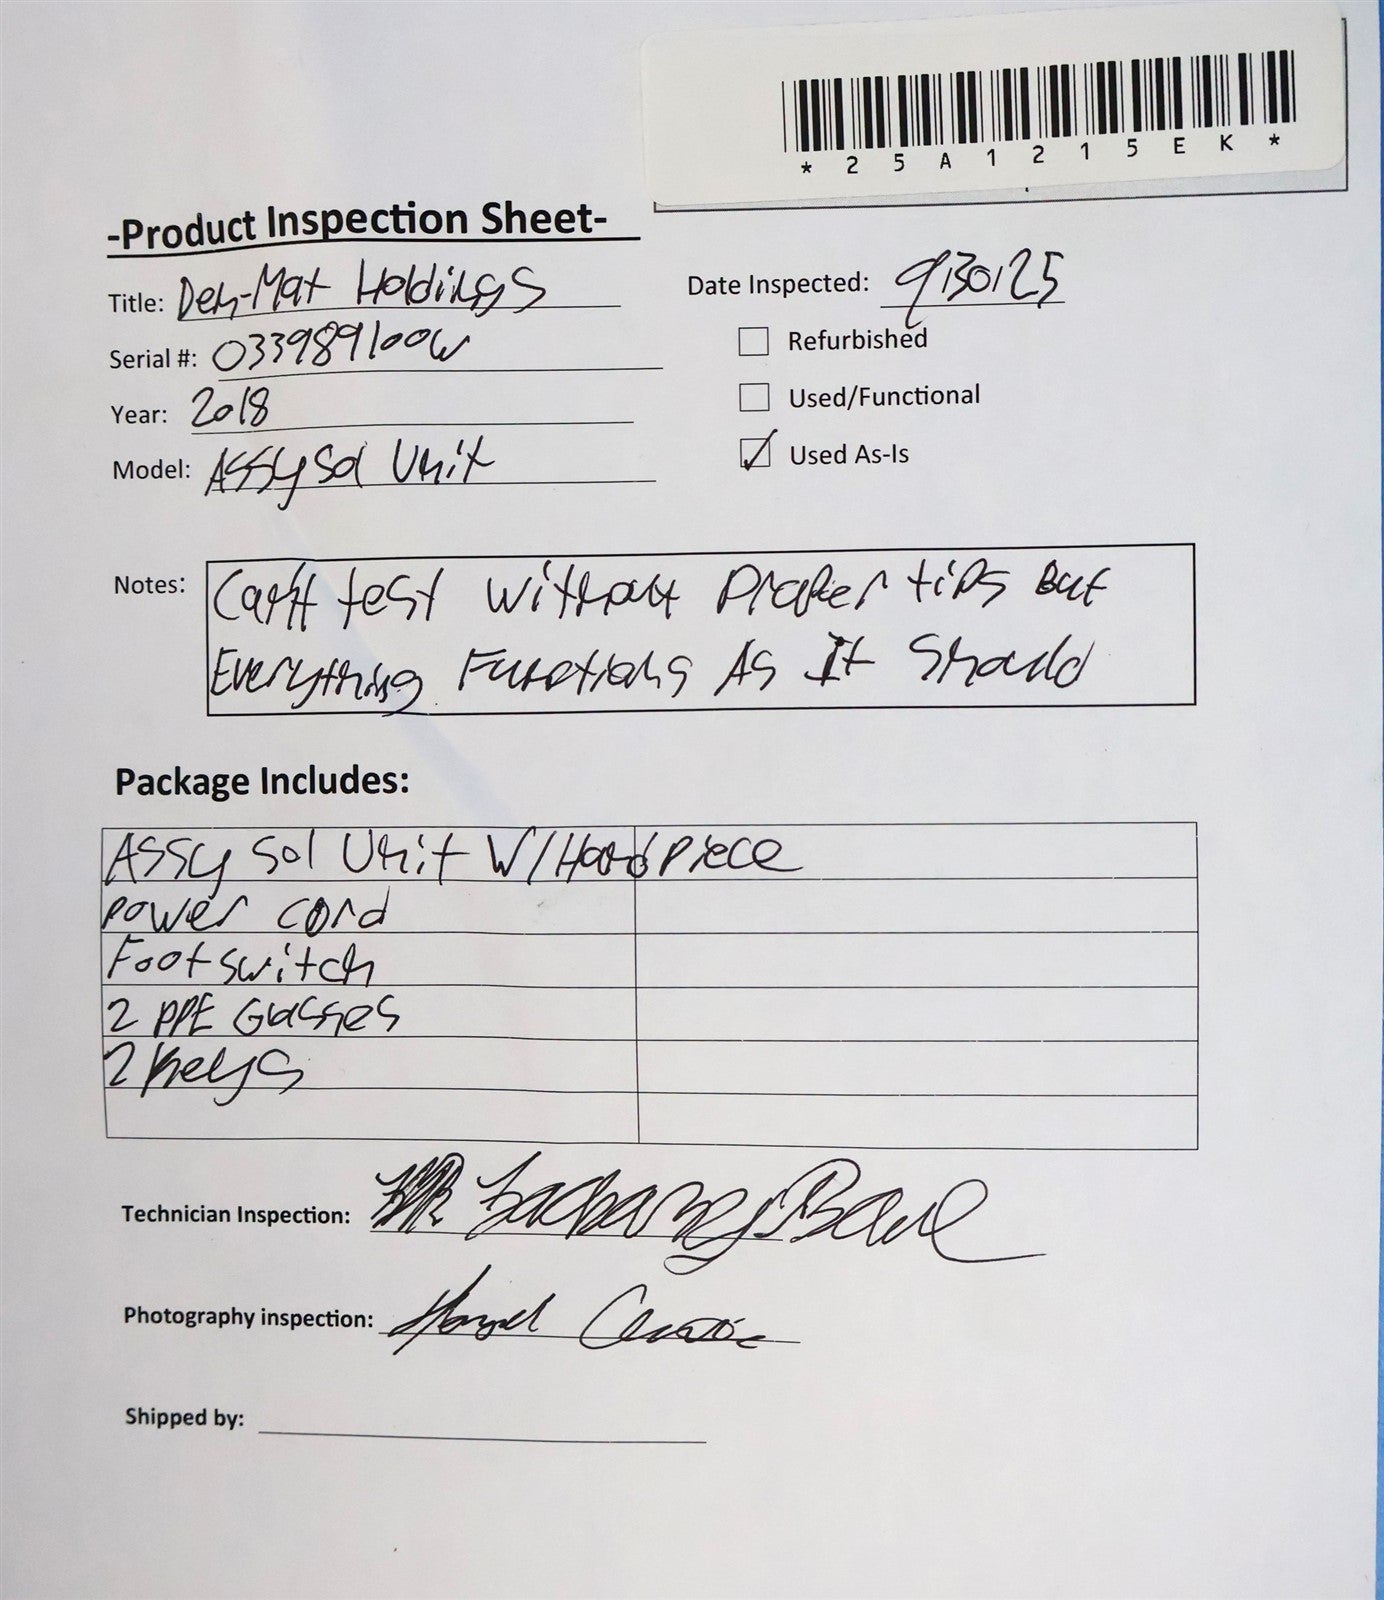 *25A1215EK*
-Product Inspection Sheet-
Title: Den-Mat Holdings
Date Inspected: 9/30/25
Serial #: 033989100W
Refurbished
Year: 2018
Used/Functional
Model: ASSY Sol Unit
Used As-Is
Notes: Can't test without Proper tips But
Everything Functions As It Should
Package Includes:
ASSY Sol Unit W/Handpiece
power cord
Footswitch
2 PPE Glasses
2 Keys
Technician Inspection:
Photography inspection:
Shipped by: